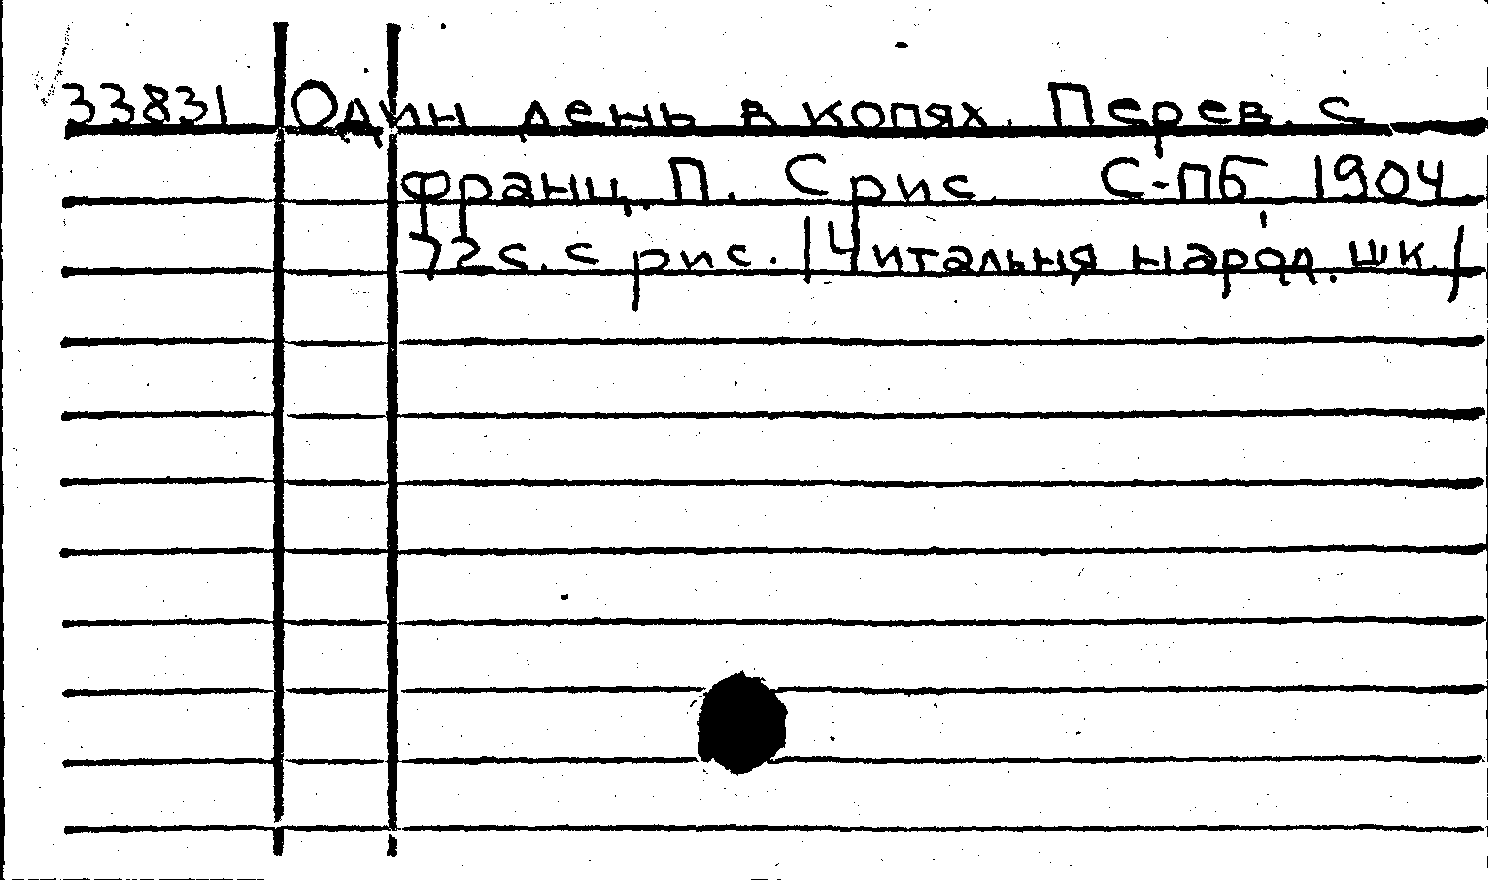 33831 Один день в копях. Перев. с
франц. П. С рис. С-ПБ 1904.
72 с. с рис. |Читальня народ. шк.|